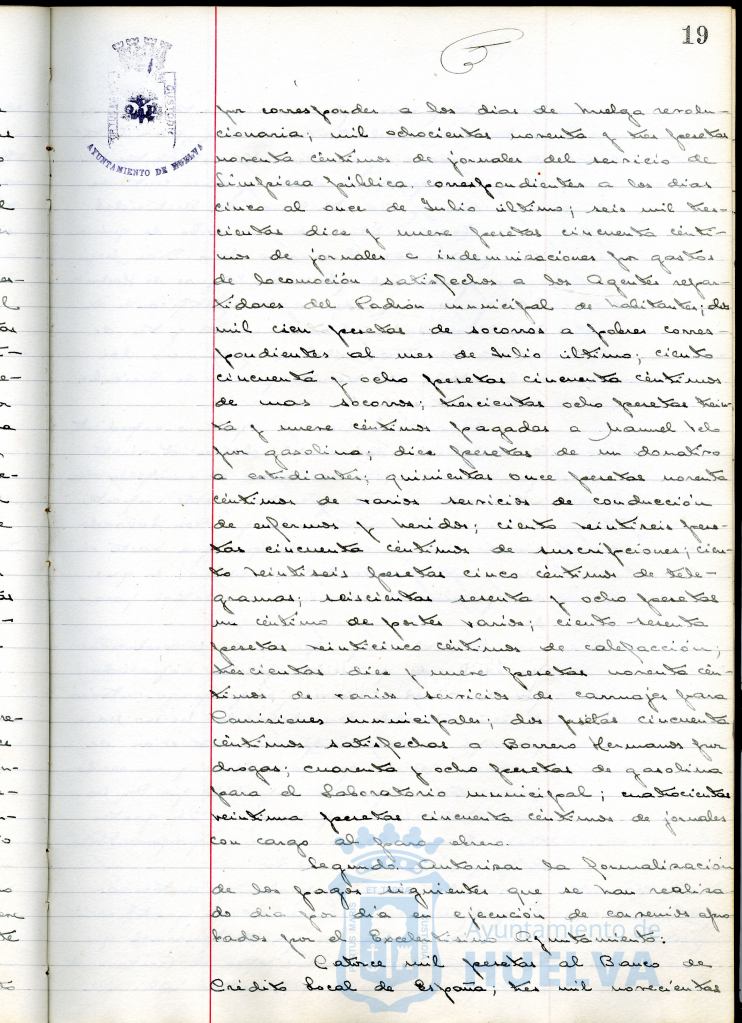 19
AYUNTAMIENTO DE HUELVA
por corresponder a los dias de huelga revolu-
cionaria; mil ochocientas noventa y tres pesetas
noventa céntimos de jornales del servicio de
Limpieza pública correspondientes a los dias
cinco al once de Julio último; seis mil tres-
cientas diez y nueve pesetas cincuenta cénti-
mos de jornales e indemnizaciones por gastos
de locomoción satisfechos a los Agentes repar-
tidores del Padrón municipal de habitantes; dos
mil cien pesetas de socorros a pobres corres-
pondientes al mes de Julio último; ciento
cincuenta y ocho pesetas cincuenta céntimos
de mas socorros; trescientas ocho pesetas trein-
ta y nueve céntimos pagadas a Manuel
por gasolina; diez pesetas de un donativo
a estudiantes; quinientas once pesetas noventa
céntimos de varios servicios de conducción
de enfermos y heridos; ciento veintiseis pese-
tas cincuenta céntimos de suscripciones; cien-
to veintiseis pesetas cinco céntimos de tele-
gramas; seiscientas sesenta y ocho pesetas
un céntimo de portes varios; ciento sesenta
pesetas veinticinco céntimos de calefacción;
trescientas diez y nueve pesetas noventa cén-
timos de varios servicios de carruajes para
Comisiones municipales; dos psetas cincuenta
céntimos satisfechas a Borrero Hermanos por
drogas; cuarenta y ocho pesetas de gasolina
para el Laboratorio municipal; cuatrocientas
veintiuna pesetas cincuenta céntimos de jornales
con cargo al paro obrero.
Segundo. Autorizar la formalización
de los pagos siguientes que se han realiza-
do dia por dia en ejecución de convenios apro-
bados por el Excelentisimo Ayuntamiento:
Catorce mil pesetas al Banco de
Crédito Local de España; tres mil novecientas
Ayuntamiento de
HUELVA